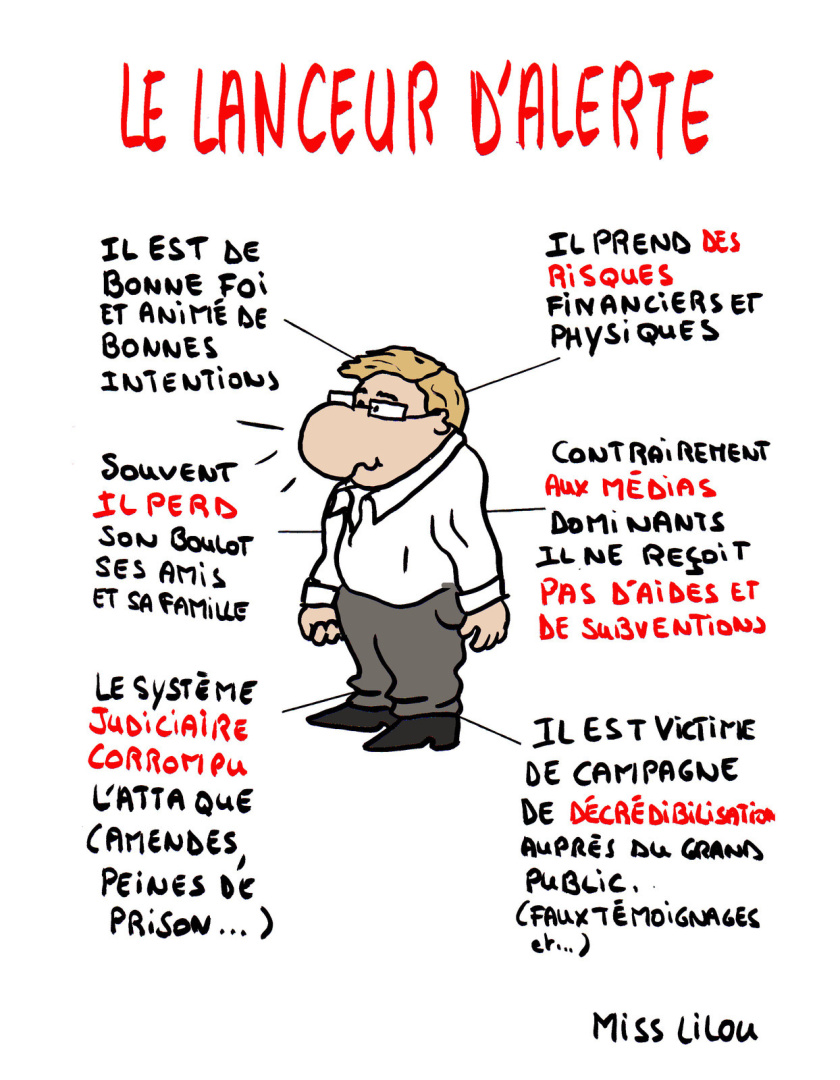 LE LANCEUR D'ALERTE
IL EST DE
BONNE FOI
ET ANIMÉ DE
BONNES
INTENTIONS
IL PREND DES
RISQUES
FINANCIERS ET
PHYSIQUES
SOUVENT
IL PERD
SON BOULOT
SES AMIS
ET SA FAMILLE
CONTRAIREMENT
AUX MÉDIAS
DOMINANTS
IL NE REÇOIT
PAS D'AIDES ET
DE SUBVENTIONS
LE SYSTÈME
JUDICIAIRE
CORROMPU
L'ATTAQUE
(AMENDES,
PEINES DE
PRISON...)
IL EST VICTIME
DE CAMPAGNE
DE DÉCRÉDIBILISATION
AUPRÈS DU GRAND
PUBLIC.
(FAUX TÉMOIGNAGES
et...)
MISS LILOU